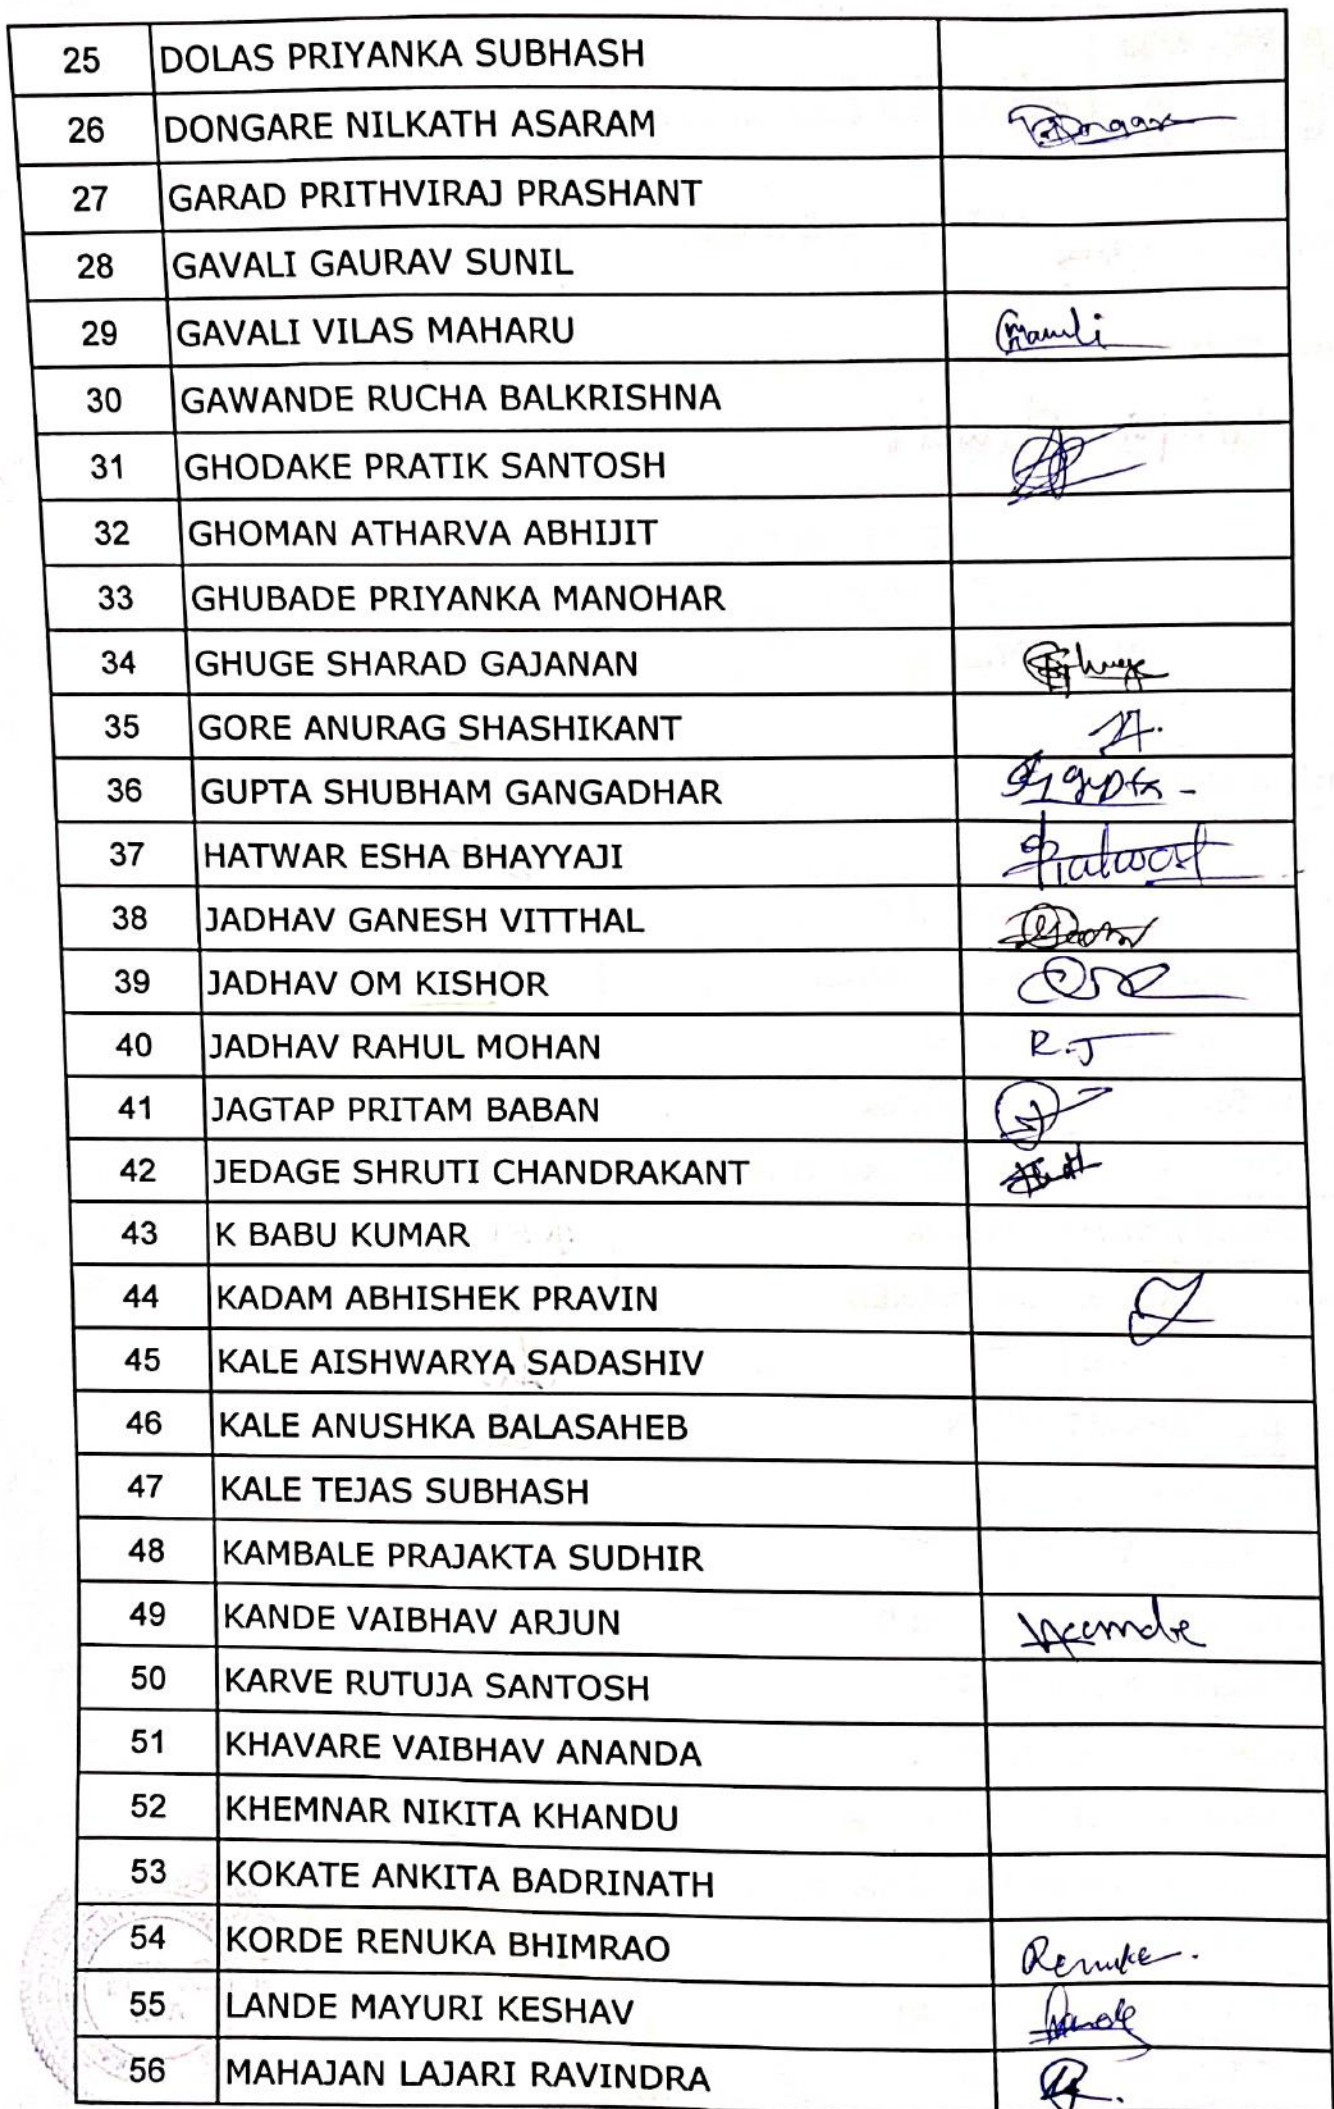 25 DOLAS PRIYANKA SUBHASH
26 DONGARE NILKATH ASARAM
27 GARAD PRITHVIRAJ PRASHANT
28 GAVALI GAURAV SUNIL
29 GAVALI VILAS MAHARU
30 GAWANDE RUCHA BALKRISHNA
31 GHODAKE PRATIK SANTOSH
32 GHOMAN ATHARVA ABHIJIT
33 GHUBADE PRIYANKA MANOHAR
34 GHUGE SHARAD GAJANAN
35 GORE ANURAG SHASHIKANT
36 GUPTA SHUBHAM GANGADHAR
37 HATWAR ESHA BHAYYAJI
38 JADHAV GANESH VITTHAL
39 JADHAV OM KISHOR
40 JADHAV RAHUL MOHAN R.J
41 JAGTAP PRITAM BABAN
42 JEDAGE SHRUTI CHANDRAKANT
43 K BABU KUMAR
44 KADAM ABHISHEK PRAVIN
45 KALE AISHWARYA SADASHIV
46 KALE ANUSHKA BALASAHEB
47 KALE TEJAS SUBHASH
48 KAMBALE PRAJAKTA SUDHIR
49 KANDE VAIBHAV ARJUN
50 KARVE RUTUJA SANTOSH
51 KHAVARE VAIBHAV ANANDA
52 KHEMNAR NIKITA KHANDU
53 KOKATE ANKITA BADRINATH
54 KORDE RENUKA BHIMRAO
55 LANDE MAYURI KESHAV
56 MAHAJAN LAJARI RAVINDRA